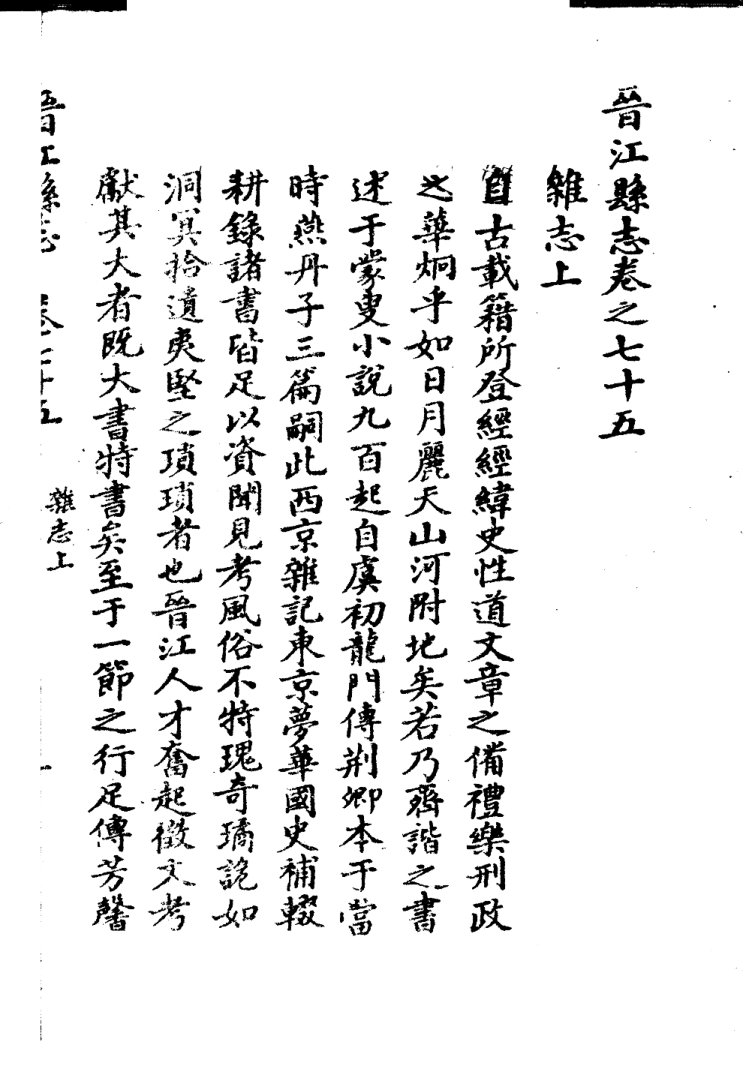 晉江縣志卷之七十五
雜志上
自古載籍所登經經緯史性道文章之備禮樂刑政
之華炯乎如日月麗天山河附地矣若乃齊諧之書
述于蒙叟小說九百起自虞初龍門傳荆卿本于當
時燕丹子三篇嗣此西京雜記東京夢華國史補輟
耕錄諸書皆足以資聞見考風俗不特瑰奇璚詭如
洞冥拾遺夷堅之瑣瑣者也晉江人才奮起徵文考
獻其大者既大書特書矣至于一節之行足傳芳馨
晉江縣志 卷七十五 雜志上 一